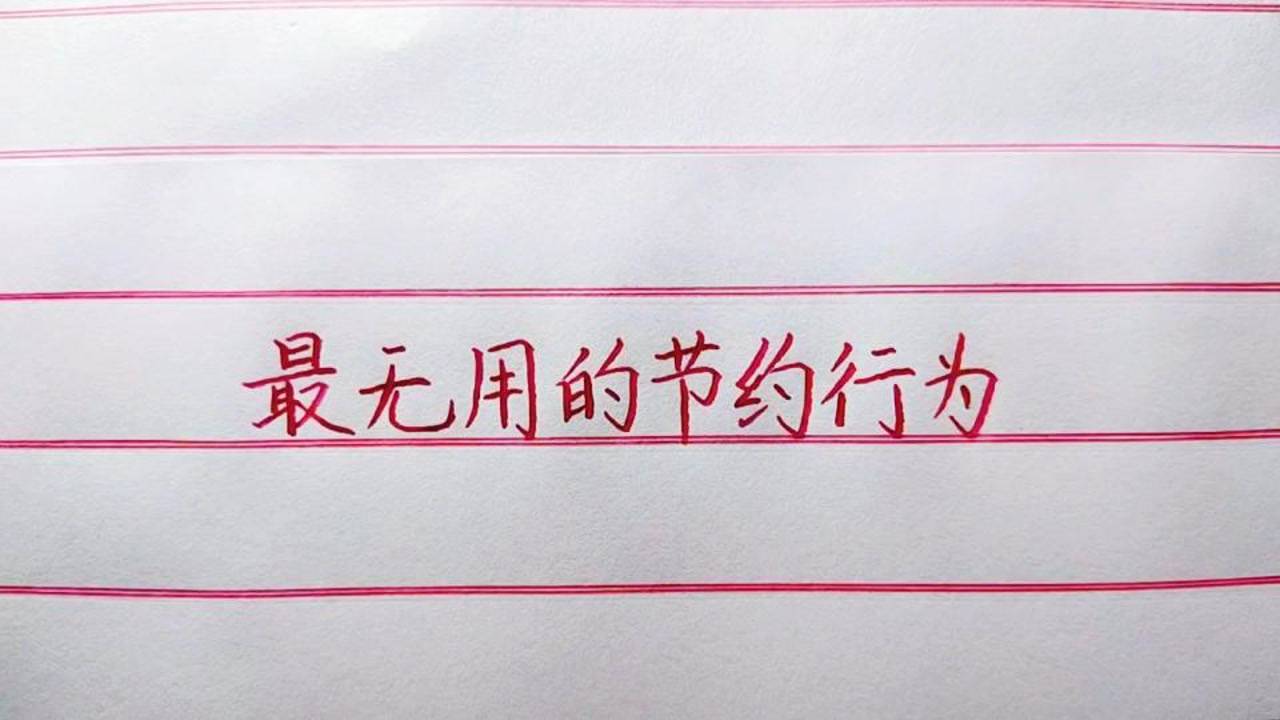 最无用的节约行为